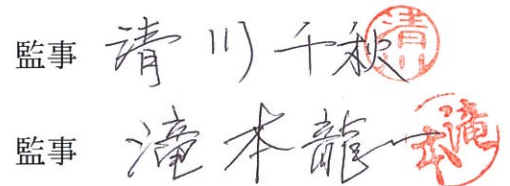 監事 清川千秋 清川
監事 滝本龍一 滝本